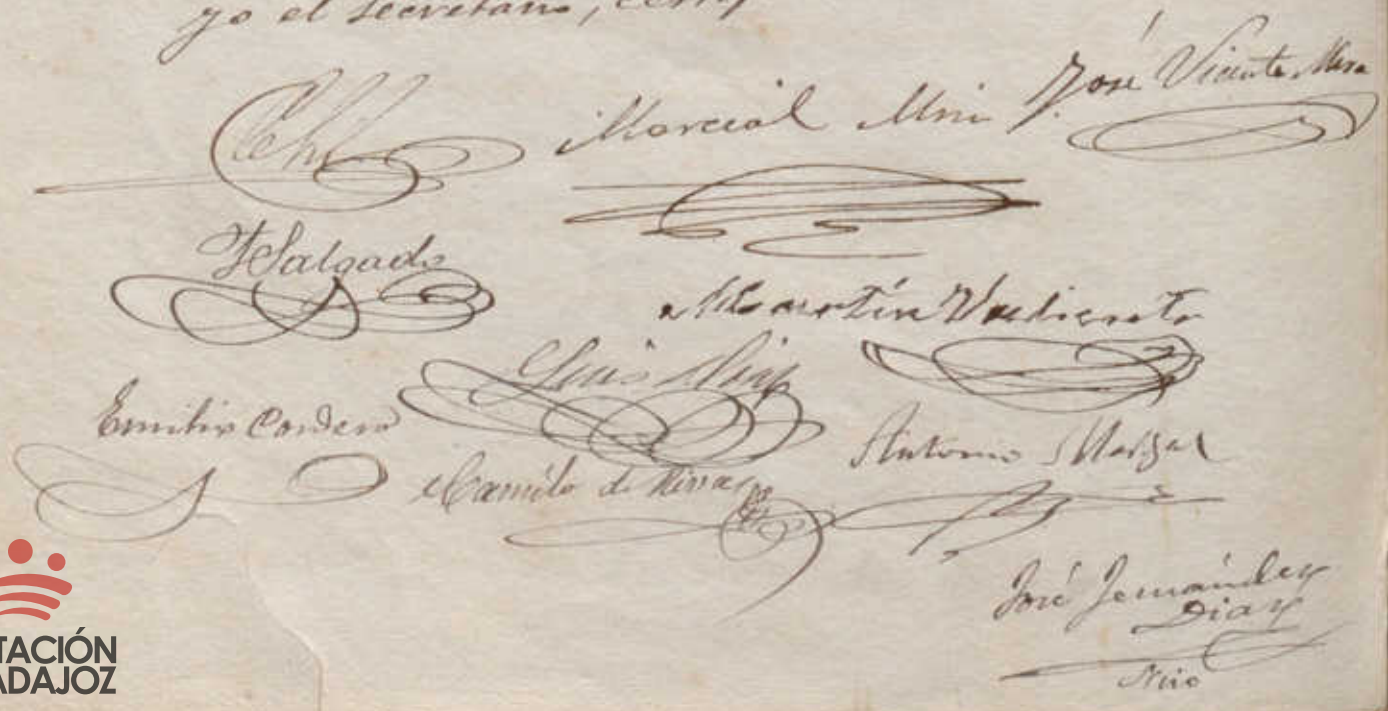 yo el secretario, certif
Marcial Mri José Vicente Mera
F Salgado
Martín Valiente
Luis Ruiz
Emilio Cordero
Antonio
Camilo de Riva
José Fernández
Diaz
TACIÓN
ADAJOZ